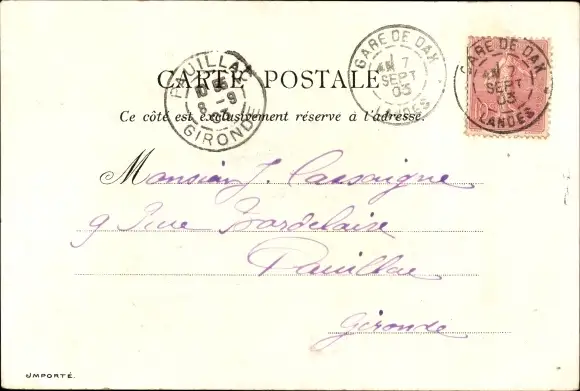 CARTE POSTALE
Ce côté est exclusivement réservé à l'adresse.
GARE DE DAX
7
SEPT
03
LANDES
GARE DE DAX
SEPT
03
LANDES
PAUILLAC
8 - 9
GIRONDE
Monsieur J. Cassaigne
9 Rue
Pauillac
Gironde
IMPORTÉ.